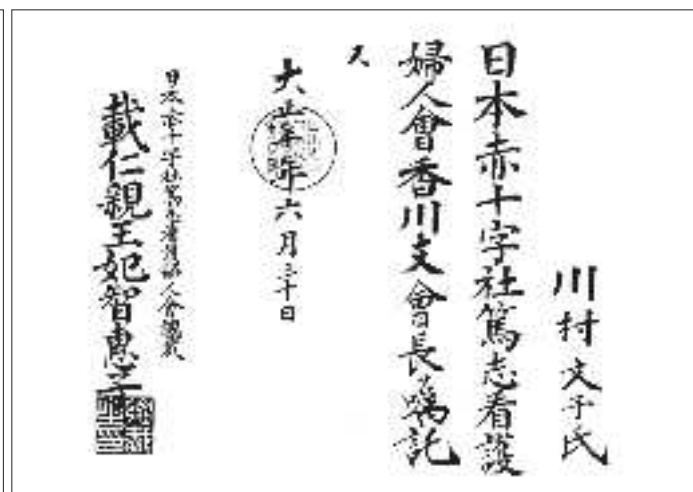 川村文子氏
日本赤十字社篤志看護
婦人會香川支會長ヲ嘱託
ス
大正 年六月三十日
日本赤十字社篤志看護婦人會總裁
載仁親王妃智恵子